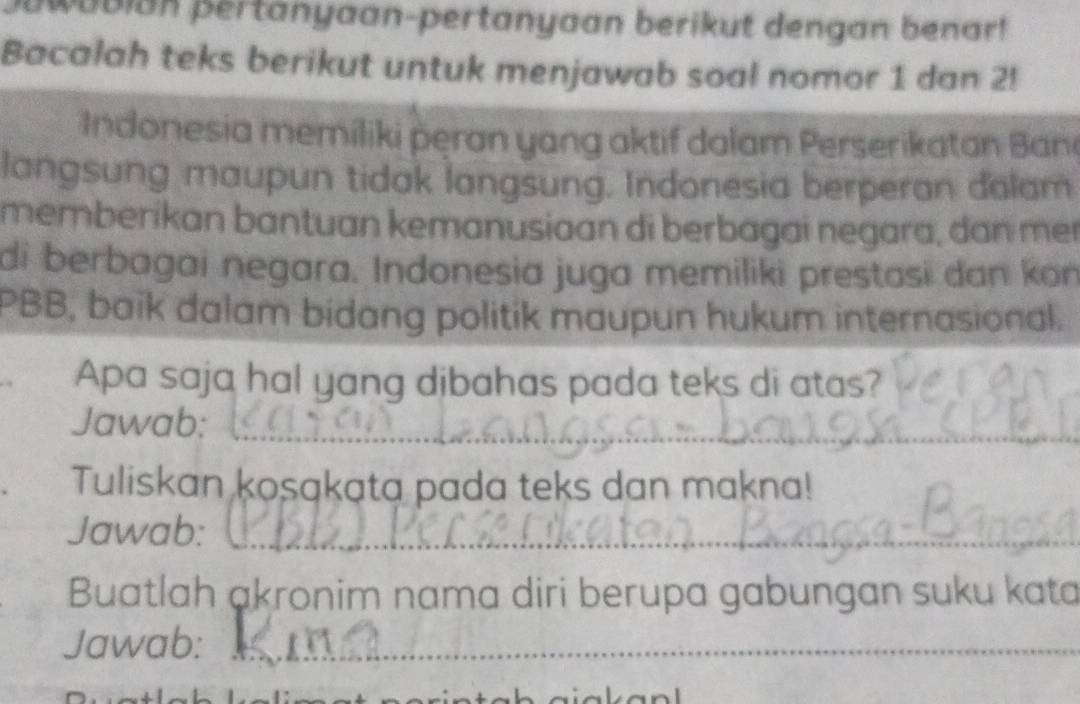 pertanyaan-pertanyaan berikut dengan benar!
Bacalah teks berikut untuk menjawab soal nomor 1 dan 2!
Indonesia memiliki peran yang aktif dalam Perserikatan Ban
langsung maupun tidak langsung. Indonesia berperan dalam
memberikan bantuan kemanusiaan di berbagai negara, dan me
di berbagai negara. Indonesia juga memiliki prestasi dan kon
PBB, baik dalam bidang politik maupun hukum internasional.
Apa saja hal yang dibahas pada teks di atas? Peran
Jawab: bangsa-bangsa
Tuliskan kosakata pada teks dan makna!
Jawab: (PBB) Perserikatan Bangsa-Bangsa
Buatlah akronim nama diri berupa gabungan suku kata
Jawab: